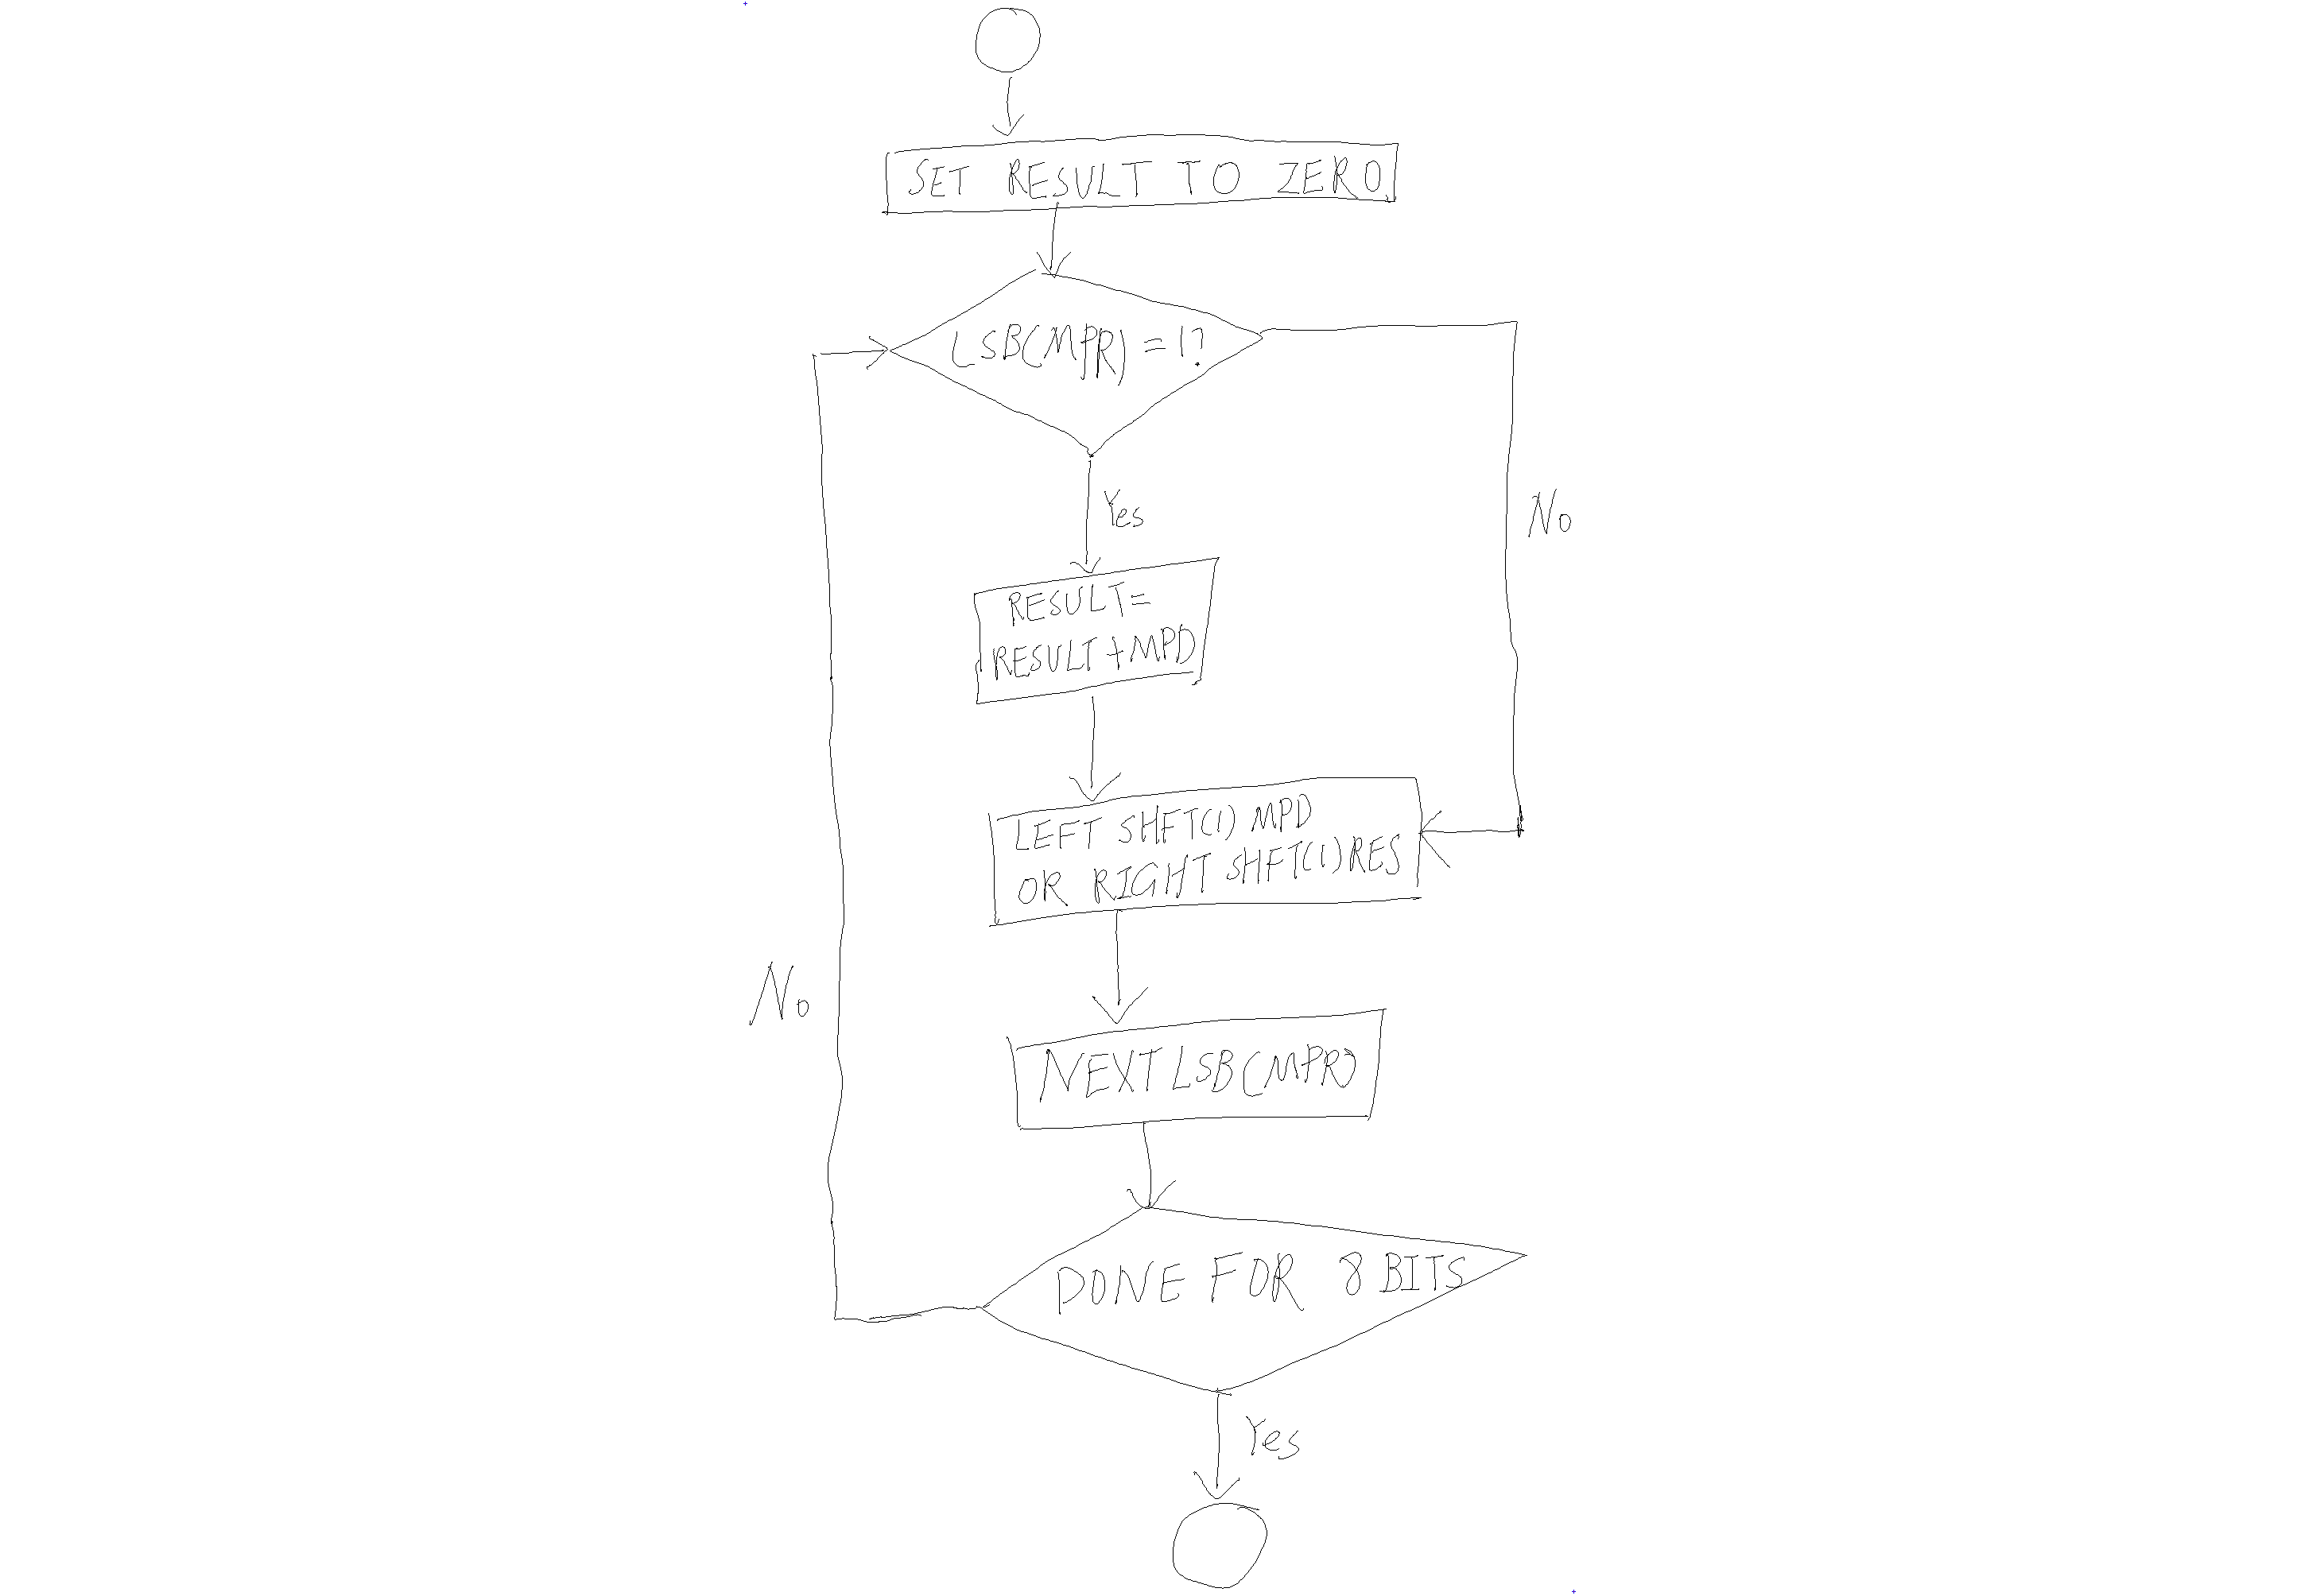 SET RESULT TO ZERO
LSB(MPR)=1?
Yes
No
RESULT=
RESULT+MPD
LEFT SHFT(1) MPD
OR RIGHT SHFT(1)RES
No
NEXT LSB(MPR)
DONE FOR 8 BITS
Yes